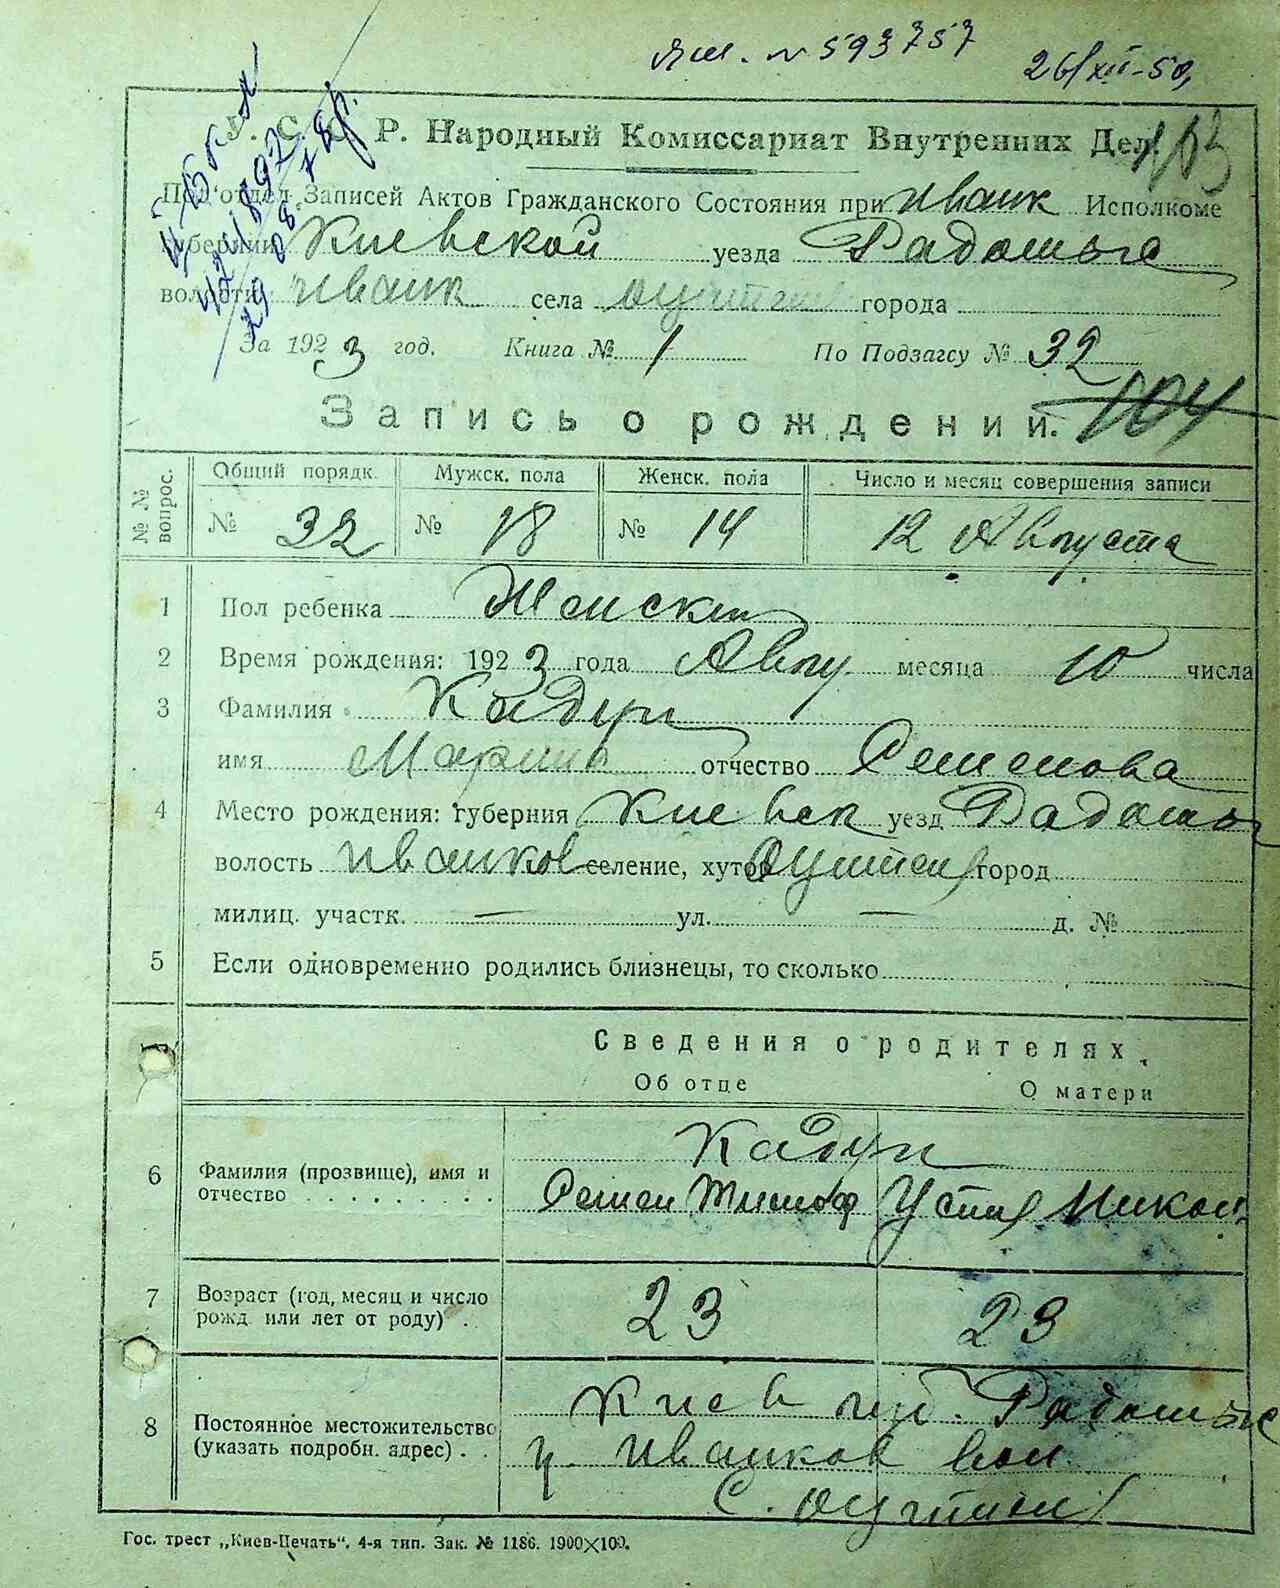 № 593757
26/XII-50,
У. С. С. Р. Народный Комиссариат Внутренних Дел.
103
Под'отдел Записей Актов Гражданского Состояния при Иванк Исполкоме
Губернии Киевской уезда Радомысл
волости Иванк села города
За 1923 год. Книга № 1 По Подзагсу № 32
104
Запись о рождении.
№№ вопрос. Общий порядк. Мужск. пола Женск. пола Число и месяц совершения записи
№ 32 № 18 № 14 12 Августа
1 Пол ребенка Женский
2 Время рождения: 1923 года Авгу месяца 10 числа
3 Фамилия Кадун
имя Марина отчество Семенова
4 Место рождения: губерния Киевск уезд Радомы
волость Иванков селение, хутор город
милиц. участк. — ул. — д. №
5 Если одновременно родились близнецы, то сколько
Сведения о родителях.
Об отце О матери
Кадун
6 Фамилия (прозвище), имя и отчество . . . . . . . . . .
Семен Тимоф Устин Никол
7 Возраст (год, месяц и число рожд. или лет от роду) . .
23 23
Киев губ. Радомысл
8 Постоянное местожительство (указать подробн. адрес) . .
у. Иванков вол
с.
Гос. трест „Киев-Печать“. 4-я тип. Зак. № 1186. 1900×100.